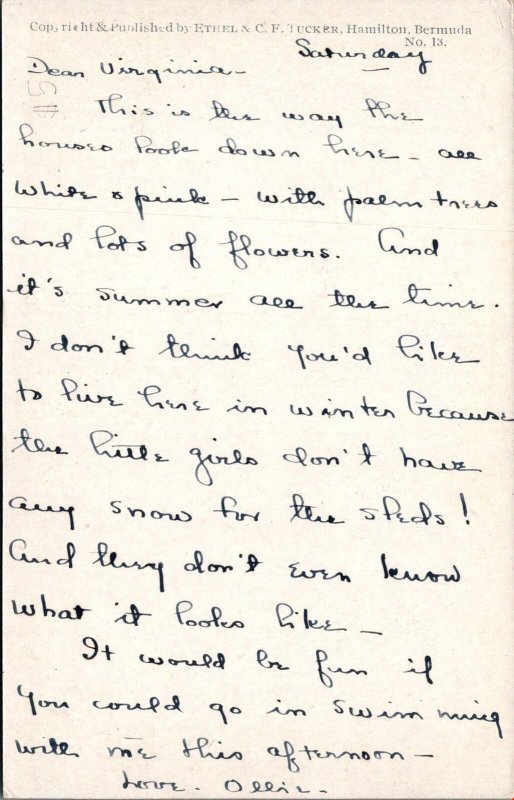 Copyright & Published by ETHEL & C. F. TUCKER, Hamilton, Bermuda
No. 13.
Saturday
Dear Virginia -
This is the way the
houses look down here - all
white & pink - with palm trees
and lots of flowers. And
it's summer all the time.
I don't think you'd like
to live here in winter because
the little girls don't have
any snow for the sleds!
And they don't even know
what it looks like -
It would be fun if
you could go in swimming
with me this afternoon -
Love. Ollie.